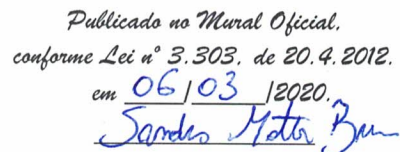 Publicado no Mural Oficial,
conforme Lei nº 3.303, de 20.4.2012.
em 06/03/2020.
Sandro